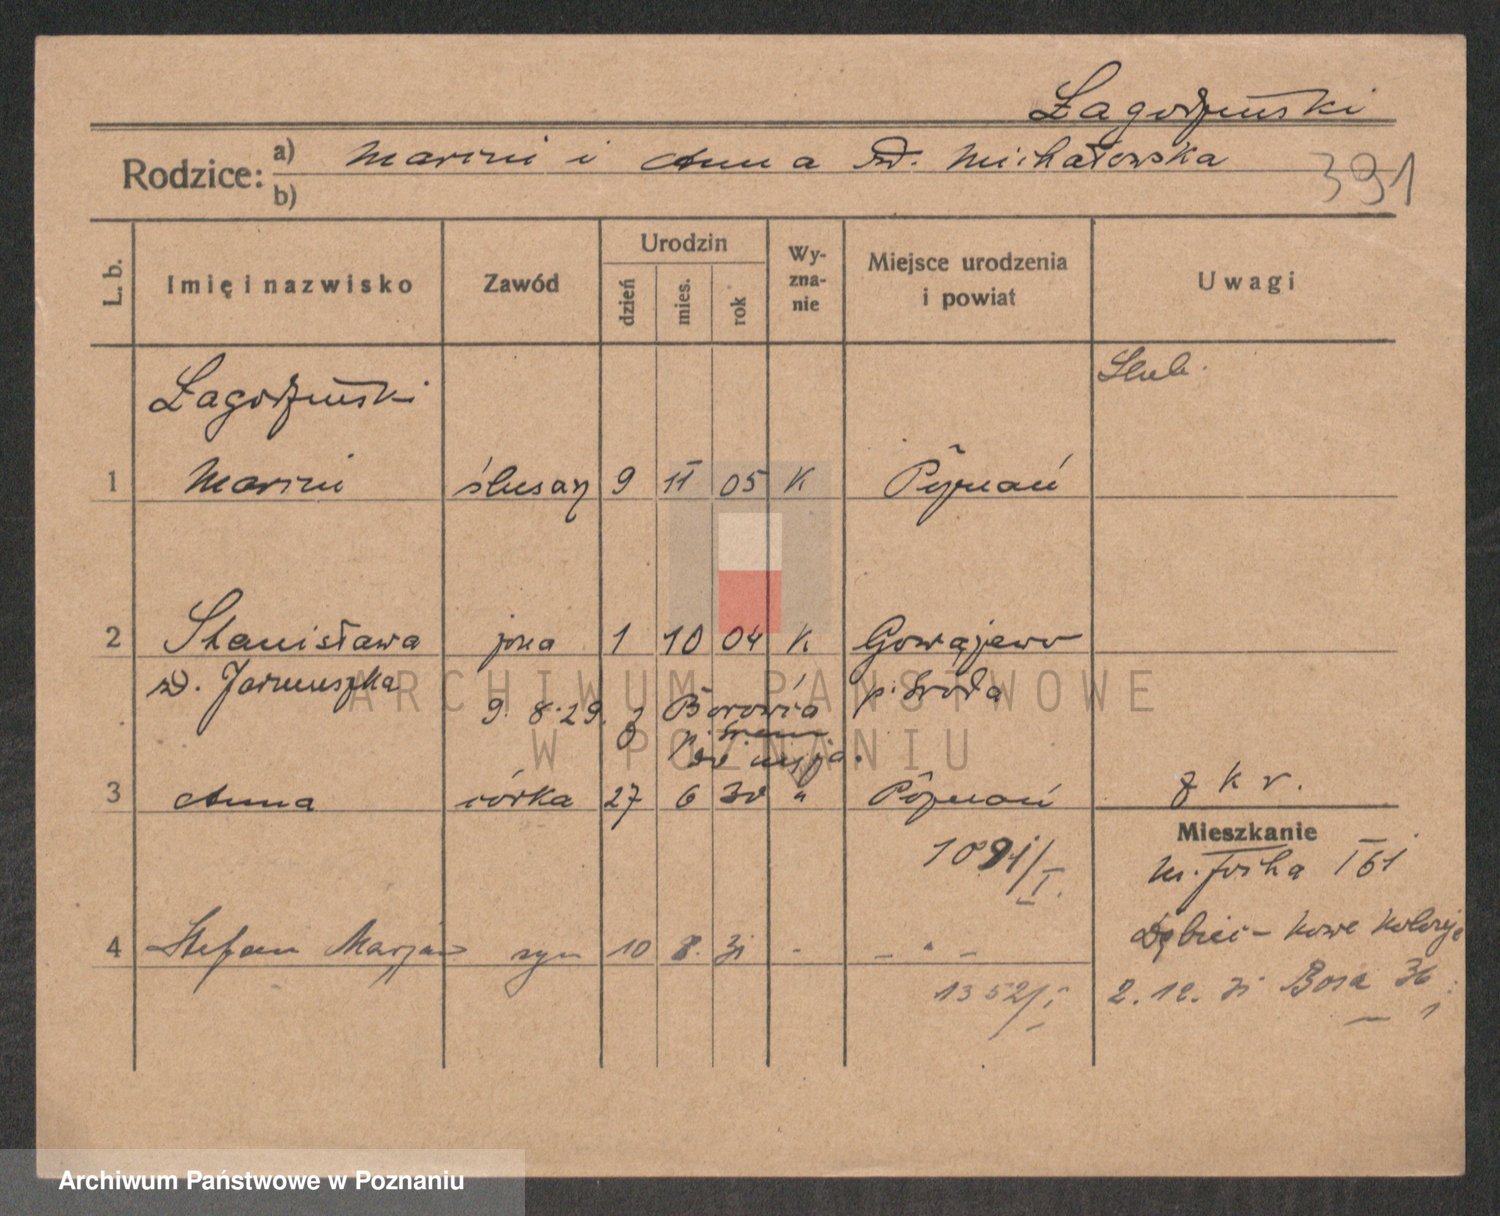 Łagodziński
Rodzice: a) Marcin i Anna zd. Michałowska
b)
391
L. b. Imię i nazwisko Zawód Urodzin dzień mies. rok Wyzna-nie Miejsce urodzenia i powiat Uwagi
Łagodziński Ślub.
1 Marcin ślusarz 9 11 05 K Poznań
2 Stanisława żona 1 10 04 K Gowarzewo
zd. Jarmuszka p. Środa
9. 8. 29. z Borówia
p. Śrem
3 Anna córka 27 6 30 " Poznań z k r.
1091/I.
Mieszkanie
I 61
4 Stefan Marjan syn 10 8. 31 - - " -
Dębiec - nowe kolonje
1352/I
2. 12. 31 Bosa 36
1
ARCHIWUM PAŃSTWOWE
W POZNANIU
Archiwum Państwowe w Poznaniu